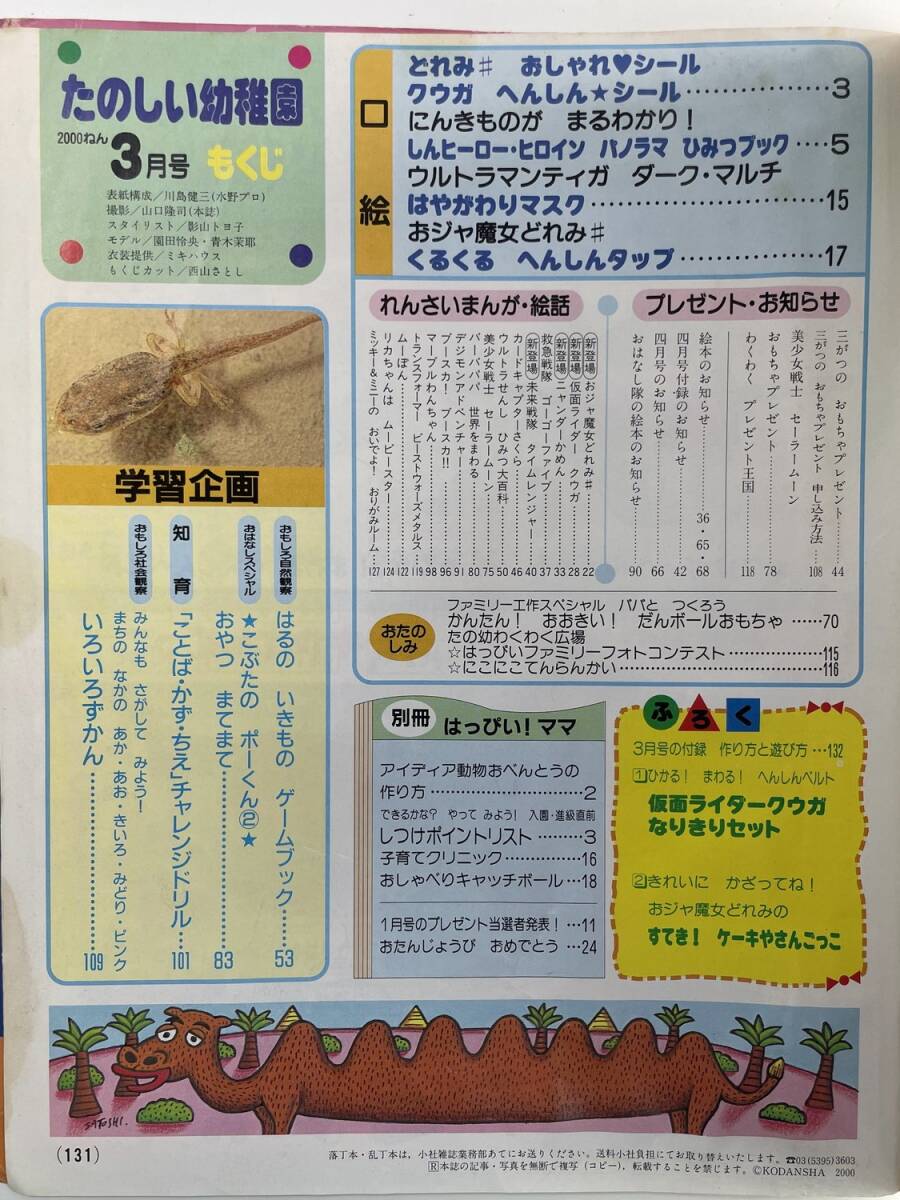 たのしい幼稚園
2000ねん
3月号 もくじ
表紙構成／川島健三(水野プロ)
撮影／山口隆司(本誌)
スタイリスト／影山トヨ子
モデル／園田怜央・青木茉耶
衣装提供／ミキハウス
もくじカット／西山さとし
口絵
どれみ♯ おしゃれ♥シール
クウガ へんしん★シール………………3
にんきものが まるわかり！
しんヒーロー・ヒロイン パノラマ ひみつブック……5
ウルトラマンティガ ダーク・マルチ
はやがわりマスク………………15
おジャ魔女どれみ♯
くるくる へんしんタップ………………17
れんさいまんが・絵話
新登場 おジャ魔女どれみ♯……22
新登場 仮面ライダー クウガ……28
新登場 ニャンダーかめん……33
救急戦隊 ゴーゴーファイブ……37
新登場 未来戦隊 タイムレンジャー……40
カードキャプターさくら……46
ウルトラせんし ひみつ大百科……50
美少女戦士 セーラームーン……75
バーバパパ 世界をまわる……80
デジモンアドベンチャー……91
ブースカ！ ブースカ!!……96
マーブルわんちゃん……98
トランスフォーマー ビーストウォーズメタルス……119
ムーぽん……122
リカちゃんは ムービースター……124
ミッキー＆ミニーの おいでよ！ おりがみルーム……127
プレゼント・お知らせ
三がつの おもちゃプレゼント……44
三がつの おもちゃプレゼント 申し込み方法……108
美少女戦士 セーラームーン
おもちゃプレゼント……78
わくわく プレゼント王国……118
絵本のお知らせ……36・65・68
四月号付録のお知らせ……42
四月号のお知らせ……66
おはなし隊の絵本のお知らせ……90
おたのしみ
ファミリー工作スペシャル パパと つくろう
かんたん！ おおきい！ だんボールおもちゃ……70
たの幼わくわく広場
☆はっぴいファミリーフォトコンテスト………115
☆にこにこてんらんかい………………116
学習企画
おもしろ自然観察
はるの いきもの ゲームブック……53
おはなしスペシャル
★こぶたの ポーくん②★
おやつ まてまて……83
知育
「ことば・かず・ちえ」チャレンジドリル……101
おもしろ社会観察
みんなも さがして みよう！
まちの なかの あか・あお・きいろ・みどり・ピンク
いろいろずかん……109
別冊 はっぴい！ママ
アイディア動物おべんとうの
作り方………………2
できるかな？ やって みよう！ 入園・進級直前
しつけポイントリスト………3
子育てクリニック…………16
おしゃべりキャッチボール…18
1月号のプレゼント当選者発表！…11
おたんじょうび おめでとう…24
ふろく
3月号の付録 作り方と遊び方…132
1 ひかる！ まわる！ へんしんベルト
仮面ライダークウガ
なりきりセット
2 きれいに かざってね！
おジャ魔女どれみの
すてき！ ケーキやさんごっこ
SATOSHI.
(131)
落丁本・乱丁本は、小社雑誌業務部あてにお送りください。送料小社負担にてお取り替えいたします。☎03(5395)3603
Ⓡ本誌の記事・写真を無断で複写（コピー）、転載することを禁じます。©KODANSHA 2000